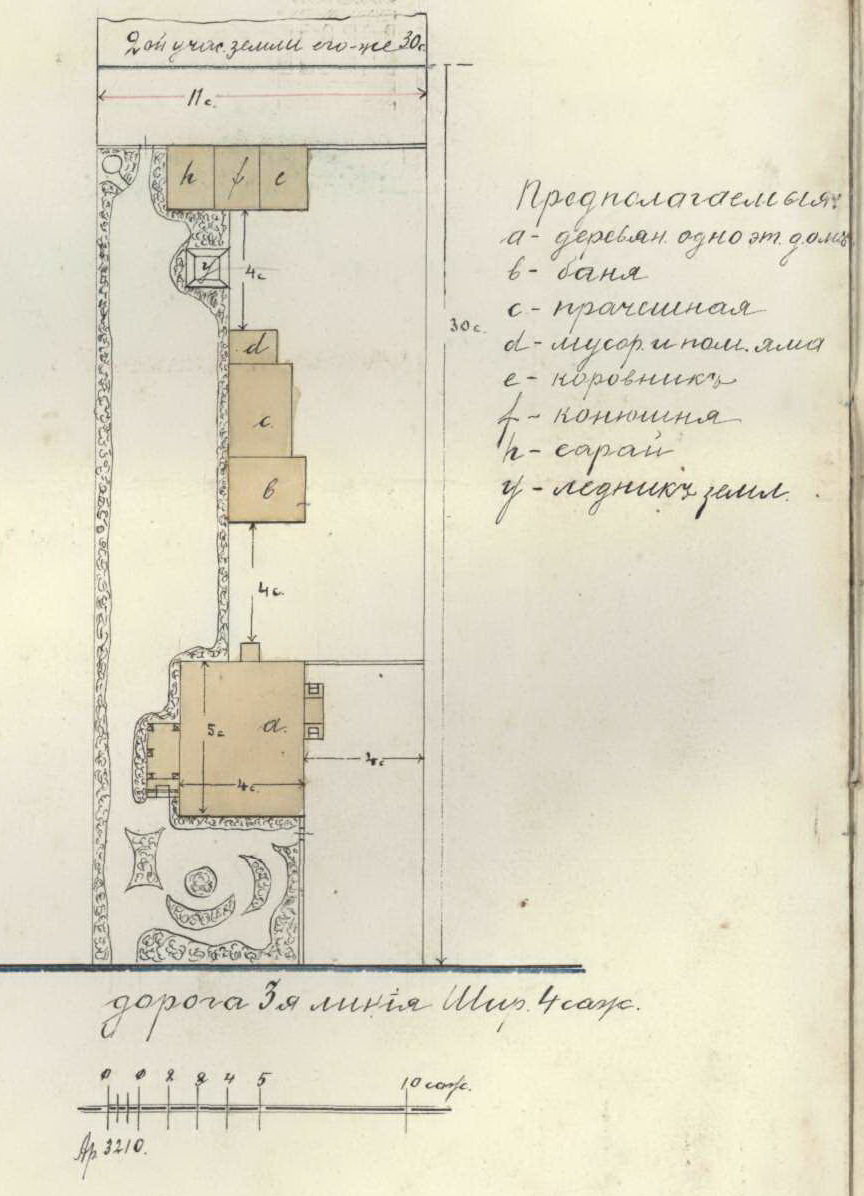 2ой учас. земли его-же 30с.
11 с.
h f e
у
4с
d
30с.
с.
в
4с.
5с
а.
4с.
4с.
Предполагаемыя:
а - деревян. одноэт. домъ
в - баня
с - прачешная
d - мусор. и пом. яма
е - коровникъ
f - конюшня
h - сарай
у - ледникъ земл.
дорога 3я линія Шир. 4 саж.
0 0 2 3 4 5 10 саж.
Ар. 3210.